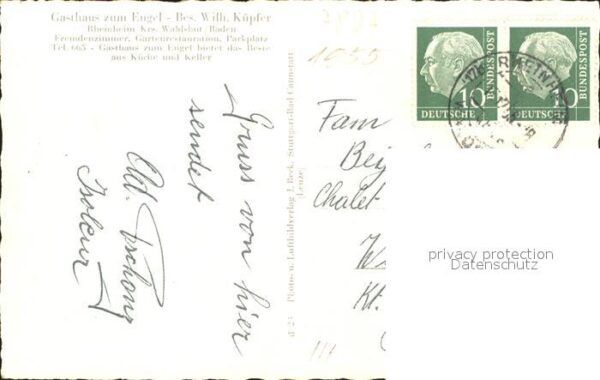 Gasthaus zum Engel - Bes. Wilh. Küpfer
Rheinheim Krs. Waldshut/Baden
Fremdenzimmer, Gartenrestauration, Parkplatz
Tel. 665 - Gasthaus zum Engel bietet das Beste
aus Küche und Keller
1955
Gruss von hier
sendet
Photo- u. Luftbildverlag J. Beck, Stuttgart-Bad Cannstatt
(Leuze)
Fam
Chalet
Kt.
10
DEUTSCHE
BUNDESPOST
10
DEUTSCHE
BUNDESPOST
privacy protection
Datenschutz